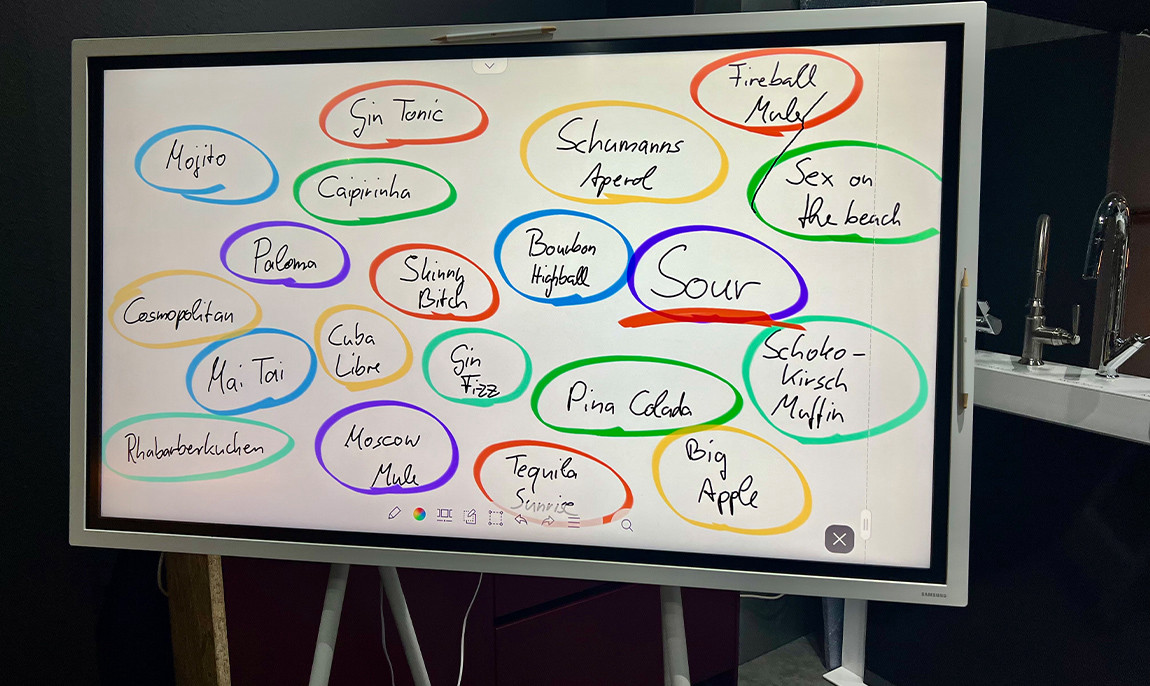 Fireball
Mule
Gin Tonic
Schumanns
Aperol
Mojito
Caipirinha
Sex on
the beach
Paloma
Skinny
Bitch
Bourbon
Highball
Sour
Cosmopolitan
Cuba
Libre
Mai Tai
Gin
Fizz
Pina Colada
Schoko-
Kirsch
Muffin
Rhabarberkuchen
Moscow
Mule
Tequila
Sunrise
Big
Apple
SAMSUNG